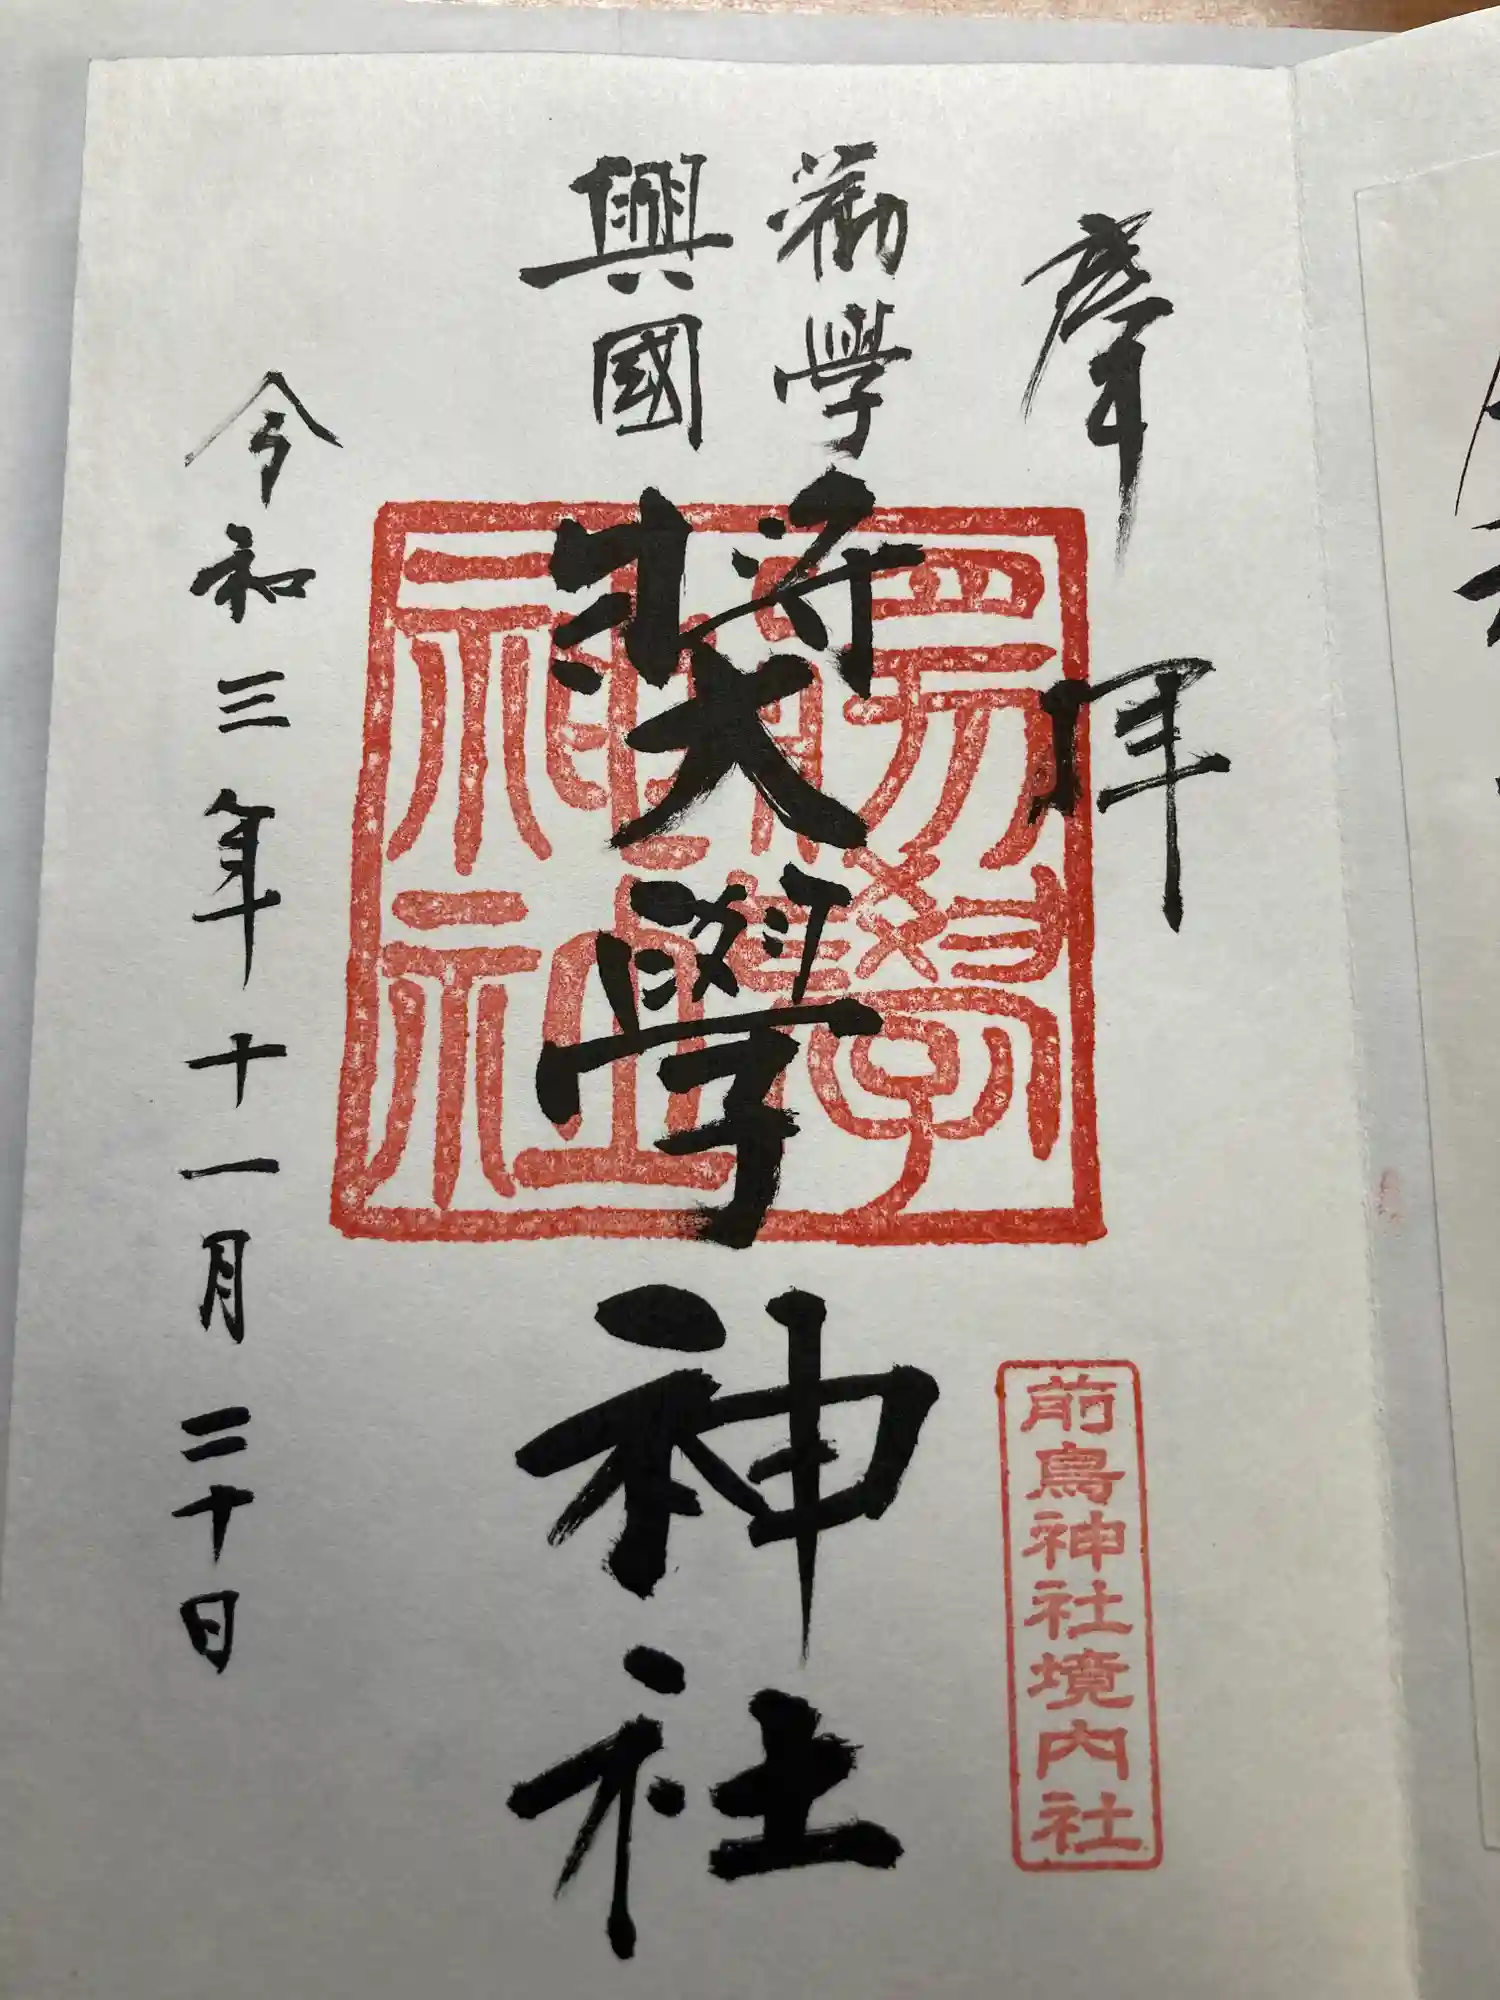 奉拝
勸學
興國
奬學神社
令和三年十一月二十日
奬學神社
前鳥神社境内社